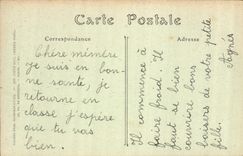 Carte Postale
Correspondance
Adresse
Chère mémère
je suis en bon-
ne santé, je
retourne en
classe j'espère
que tu vas
bien.
Il commence à
faire froid. Il
faut se bien
couvrire bons
baisers de votre petite
fille.
Agnès